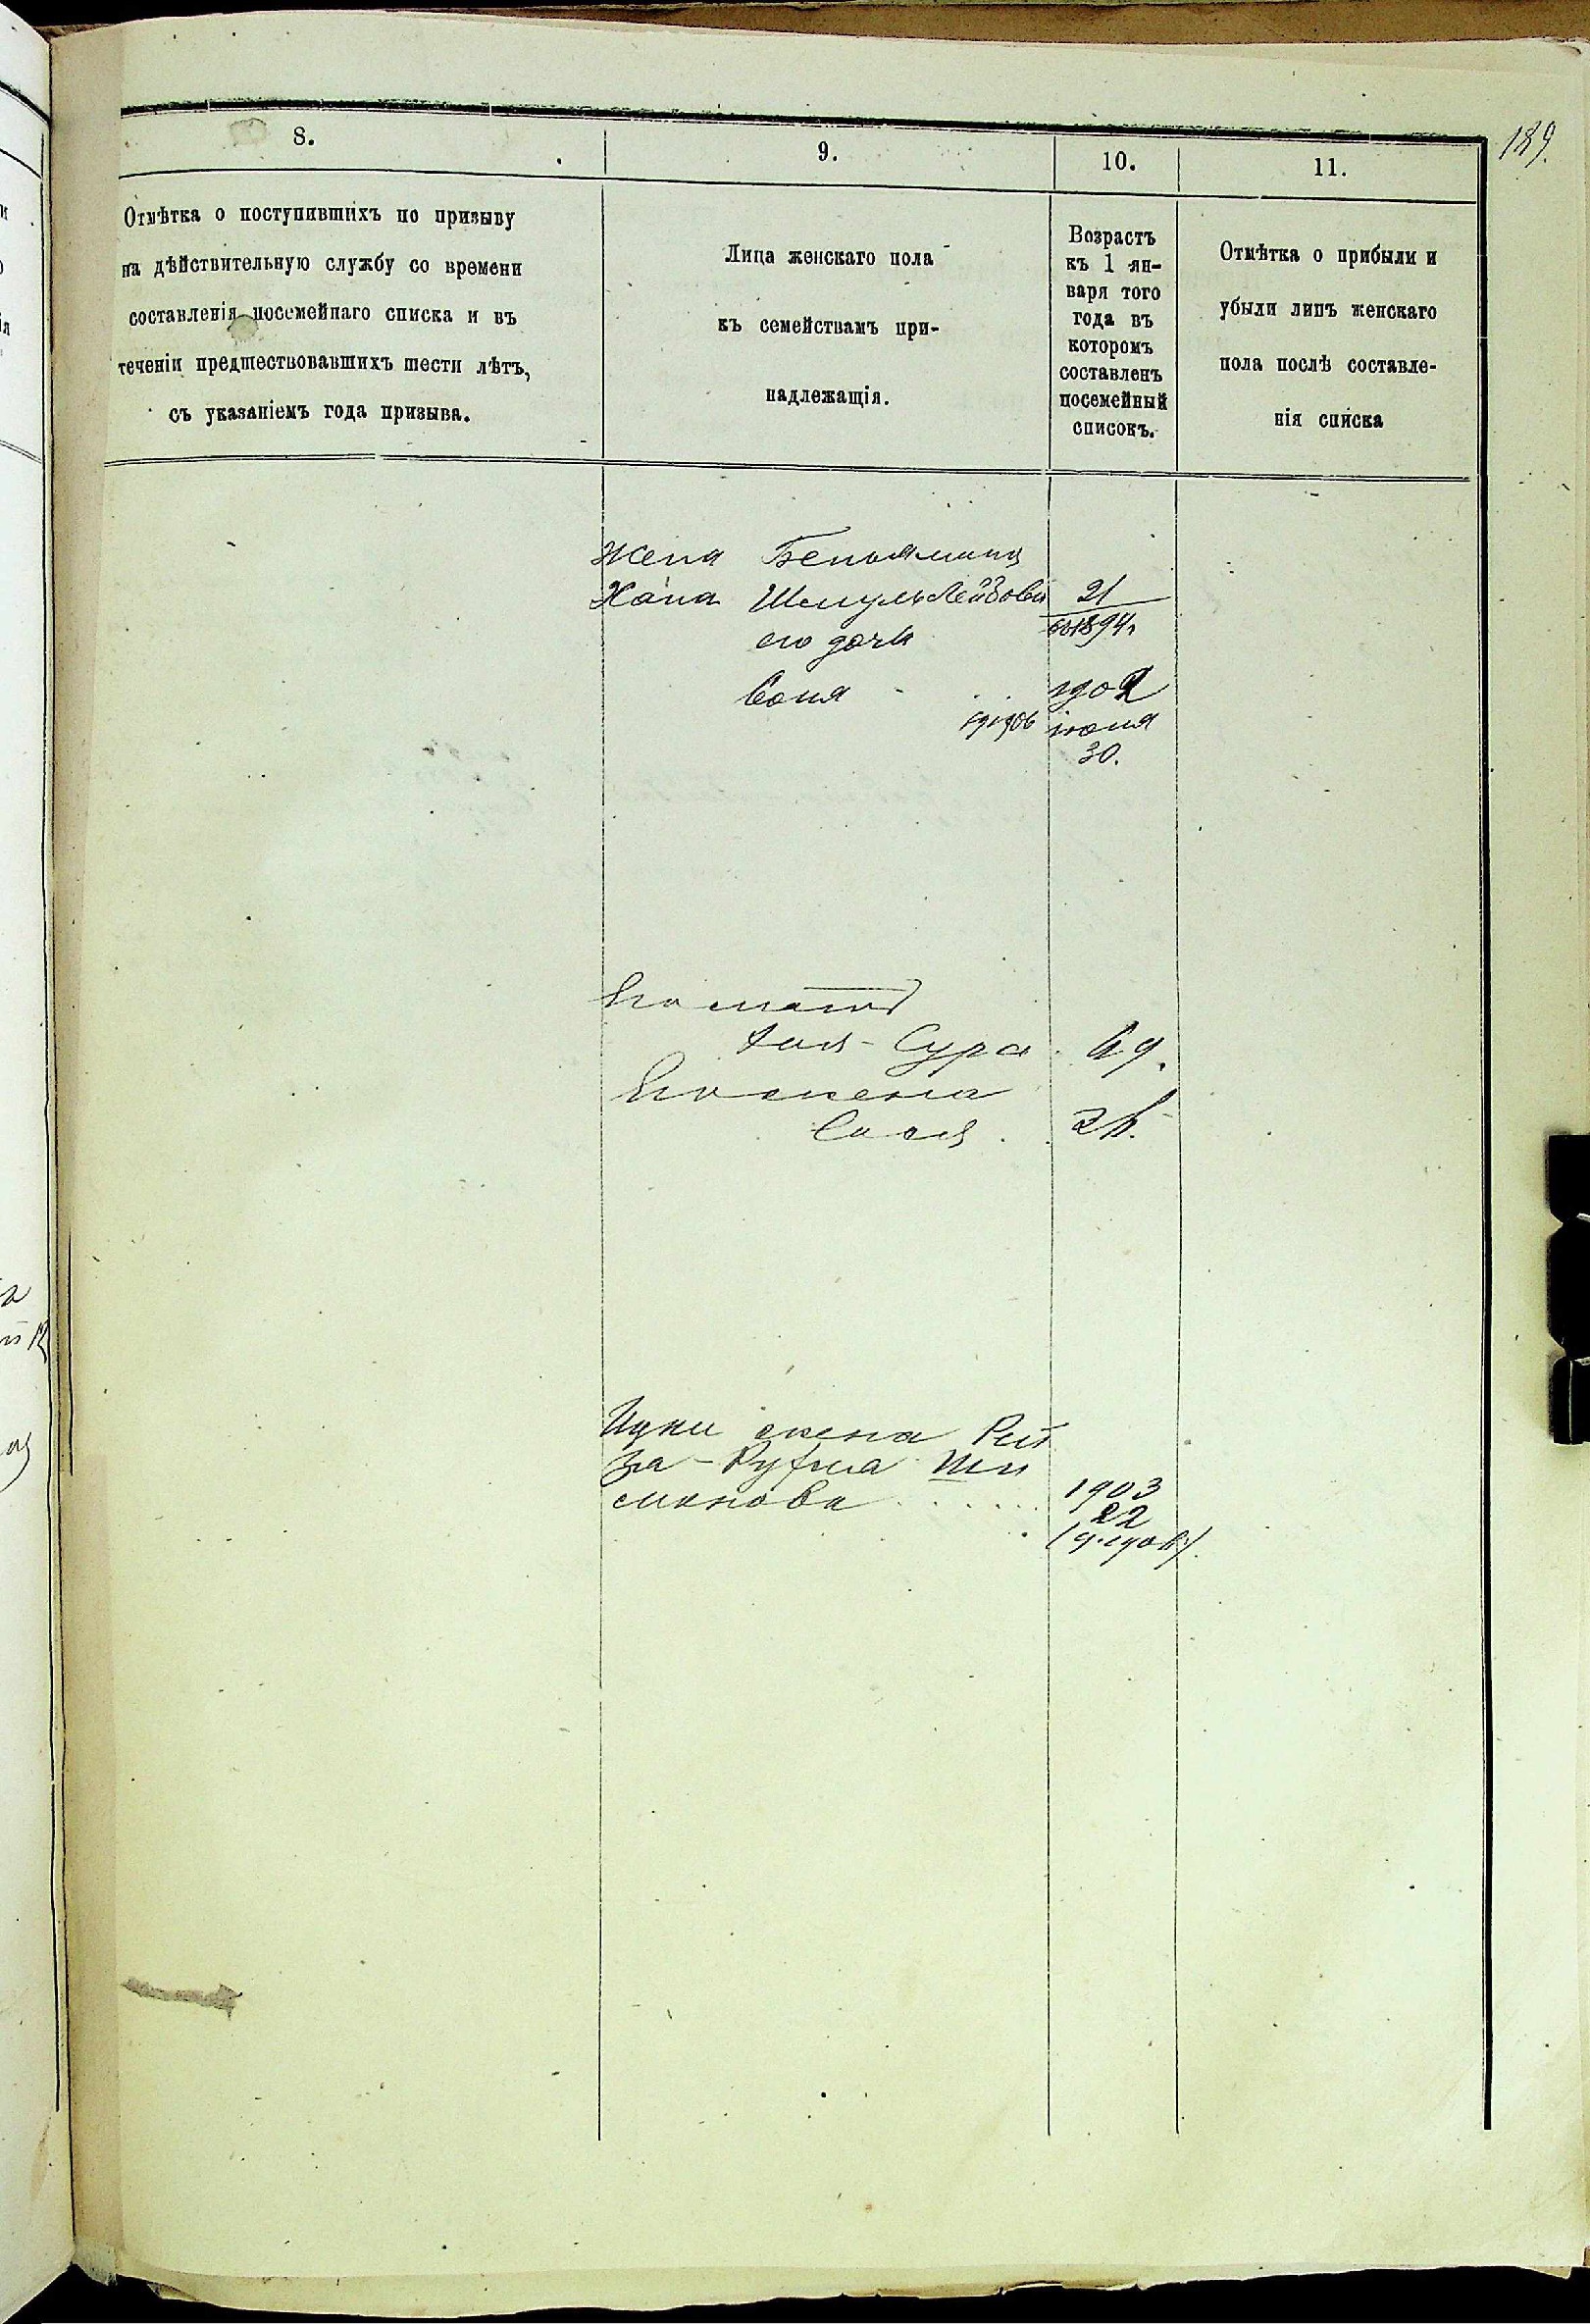 189.
8.
9.
10.
11.
Отмѣтка о поступившихъ по призыву
на дѣйствительную службу со времени
составленія посемейнаго списка и въ
теченіи предшествовавшихъ шести лѣтъ,
съ указаніемъ года призыва.
Лица женскаго пола
къ семействамъ при-
надлежащія.
Возрастъ
къ 1 ян-
варя того
года въ
которомъ
составленъ
посемейный
списокъ.
Отмѣтка о прибыли и
убыли лицъ женскаго
пола послѣ составле-
нія списка
Жена Беньямина
Хана Шмуль Лейбова 21
его дочь 1894
Соня
іюня
30.
Его мать
Сура 49.
Его жена
Ицки жена Рей
за - Руфма
1903
22